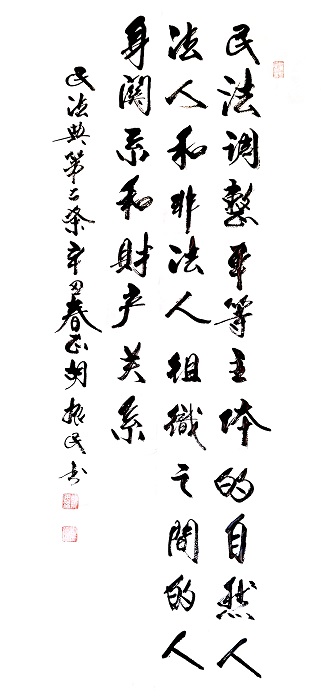 民法调整平等主体的自然人
法人和非法人组織之间的人
身関系和财产关系
民法典第二条辛丑春正胡振民书